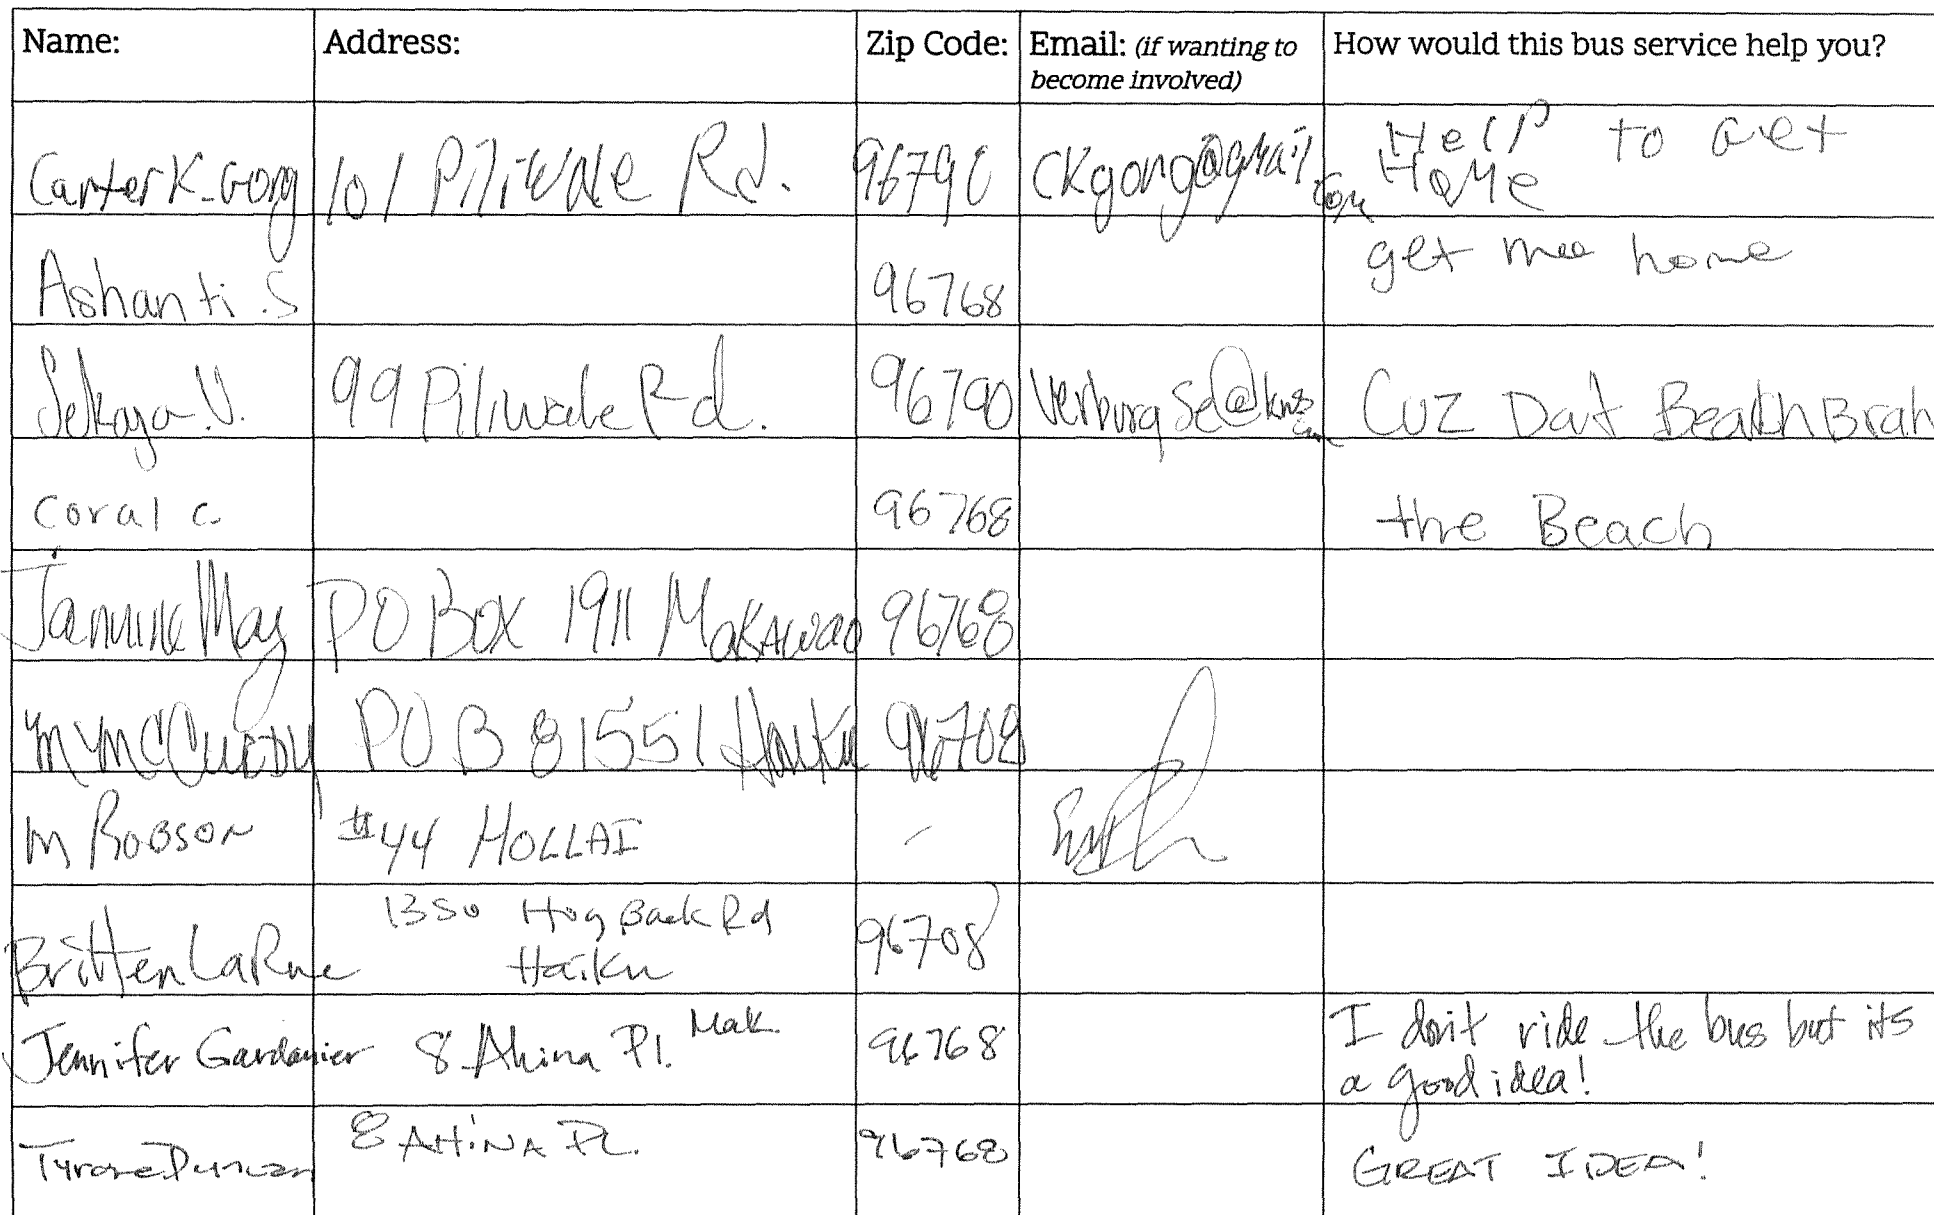 Name: Address: Zip Code: Email: (if wanting to become involved) How would this bus service help you?
Carter K-Gong 101 Piliwale Rd. 96790 CKgong@gmail.com Help to get Home
Ashanti .S 96768 get mee home
Sekaya V. 99 Piliwale Rd. 96790 Cuz Dat Beach Brah
Coral c. 96768 the Beach
May PO Box 1911 Makawao 96768
M McCurdy PO B 81551 Haiku 96708
M Robson #44 HOLLAI -
Britten LaRue 1350 Hog Back Rd Haiku 96708
Jennifer Gardanier 8 Ahina Pl. Mak. 96768 I don't ride the bus but its a good idea!
Tyrone Duncan 8 AHINA PL. 96768 GREAT IDEA!